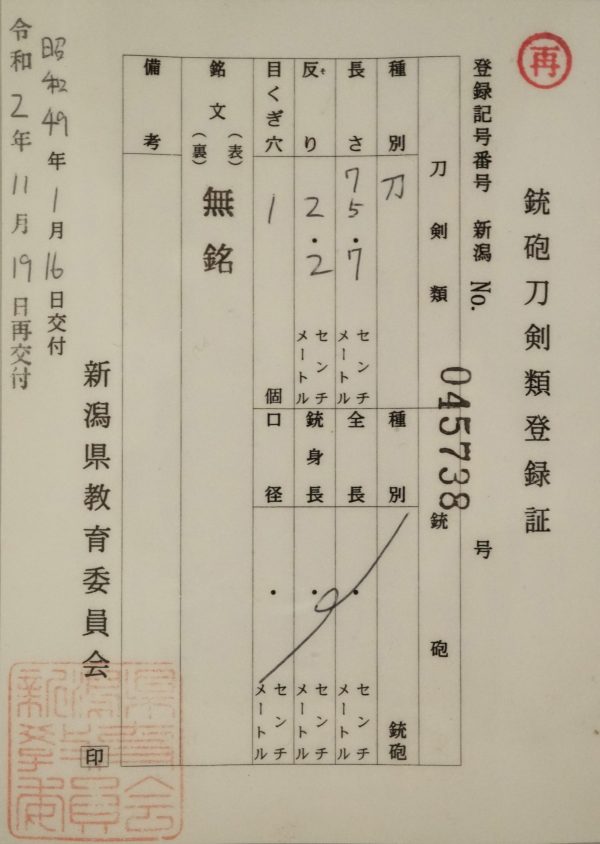 再
銃砲刀剣類登録証
登録記号番号 新潟 No. 045738 号
刀剣類
種別 刀
長さ 75.7 センチメートル
反り 2.2 センチメートル
そ
目くぎ穴 1 個
銘文 (表) 無銘
(裏)
備考
銃砲
種別 銃砲
全長 . センチメートル
銃身長 . センチメートル
口径 . センチメートル
昭和49年1月16日交付
令和2年11月19日再交付
新潟県教育委員会 印
新潟県教育委員会